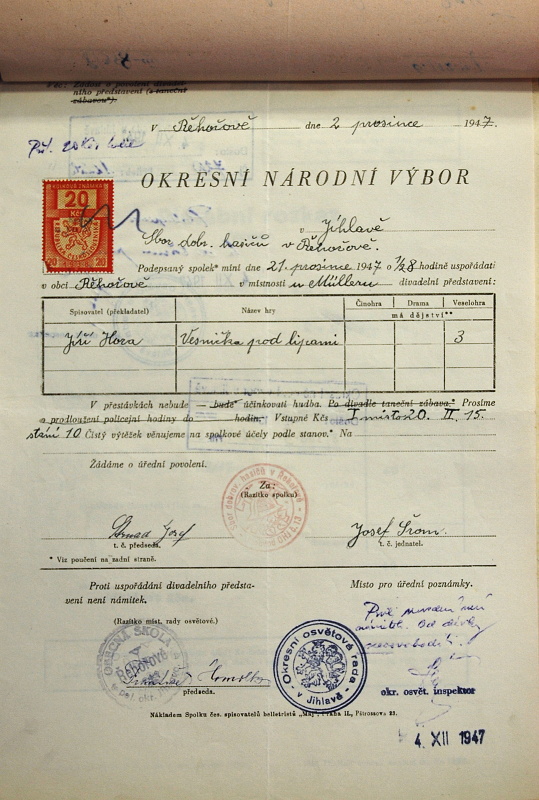 Věc: Žádost o povolení divadel-
ního představení (a taneční
zábavou*).
V Řehořově dne 2 prosince 1947.
OKRESNÍ NÁRODNÍ VÝBOR
KOLKOVÁ ZNÁMKA
20
Kčs
20 20
v Jihlavě
Sbor dobr. hasičů v Řehořově.
Podepsaný spolek* míní dne 21. prosince 1947 o 1/28 hodině uspořádati
v obci Řehořově v místnosti u Müllerů divadelní představení:
Spisovatel (překladatel) Název hry Činohra Drama Veselohra
má dějství**
Jiří Hora Vesnička pod lipami 3
V přestávkách nebude — bude* účinkovati hudba. Po divadle taneční zábava.* Prosíme
o prodloužení policejní hodiny do hodin. Vstupné Kčs I místo 20. II. 15.
stání 10 Čistý výtěžek věnujeme na spolkové účely podle stanov.* Na
Žádáme o úřední povolení.
Za:
(Razítko spolku)
Sbor dobrov. hasičů v Řehořově
Josef Šrom.
t. č. předseda. t. č. jednatel.
* Viz poučení na zadní straně.
Proti uspořádání divadelního předsta-
vení není námitek.
Místo pro úřední poznámky.
(Razítko míst. rady osvětové.)
OBECNÁ ŠKOLA
ŘEHOŘOVĚ
Okresní osvětová rada
v Jihlavě
předseda.
okr. osvět. inspektor
Nákladem Spolku čes. spisovatelů belletristů „Máj", Praha II., Pštrossova 23.
4. XII 1947